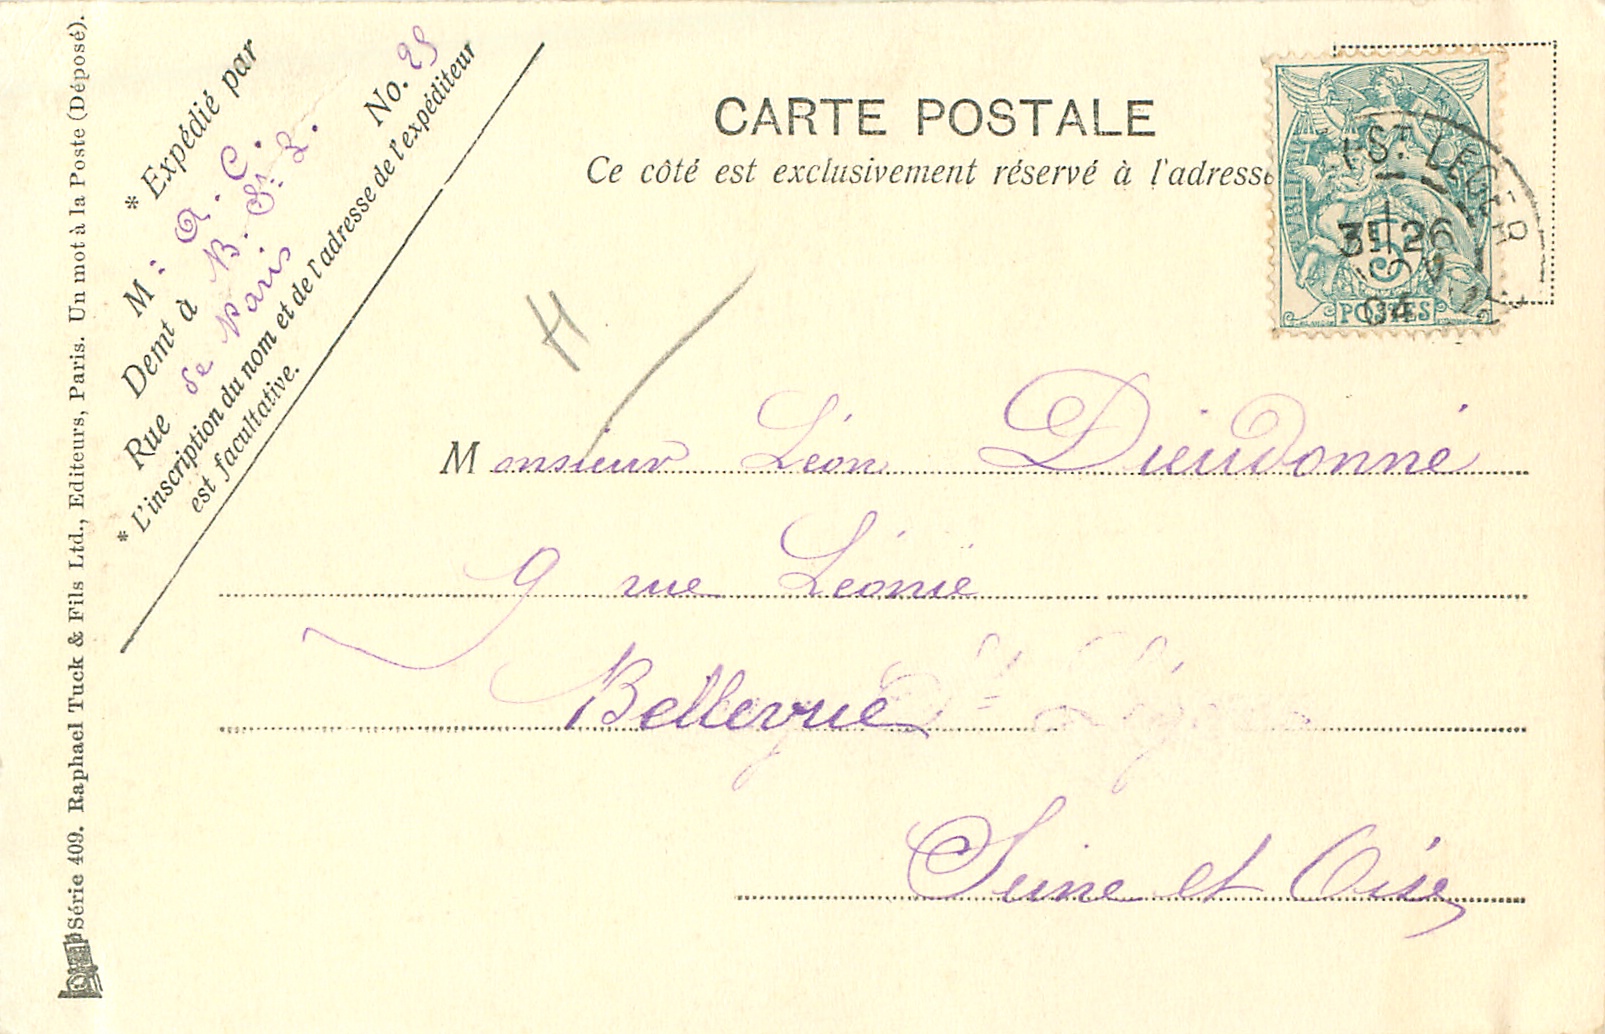 CARTE POSTALE
Ce côté est exclusivement réservé à l'adresse
* Expédié par
M: A. C.
Demt à B. St L.
Rue de Paris No. 25
* L'inscription du nom et de l'adresse de l'expéditeur
est facultative.
Monsieur Léon Dieudonné
9 rue Léonie
Bellevue
Seine et Oise
POSTES
ST LEGER
3E 26
04
Série 409. Raphael Tuck & Fils Ltd., Editeurs, Paris. Un mot à la Poste (Déposé).